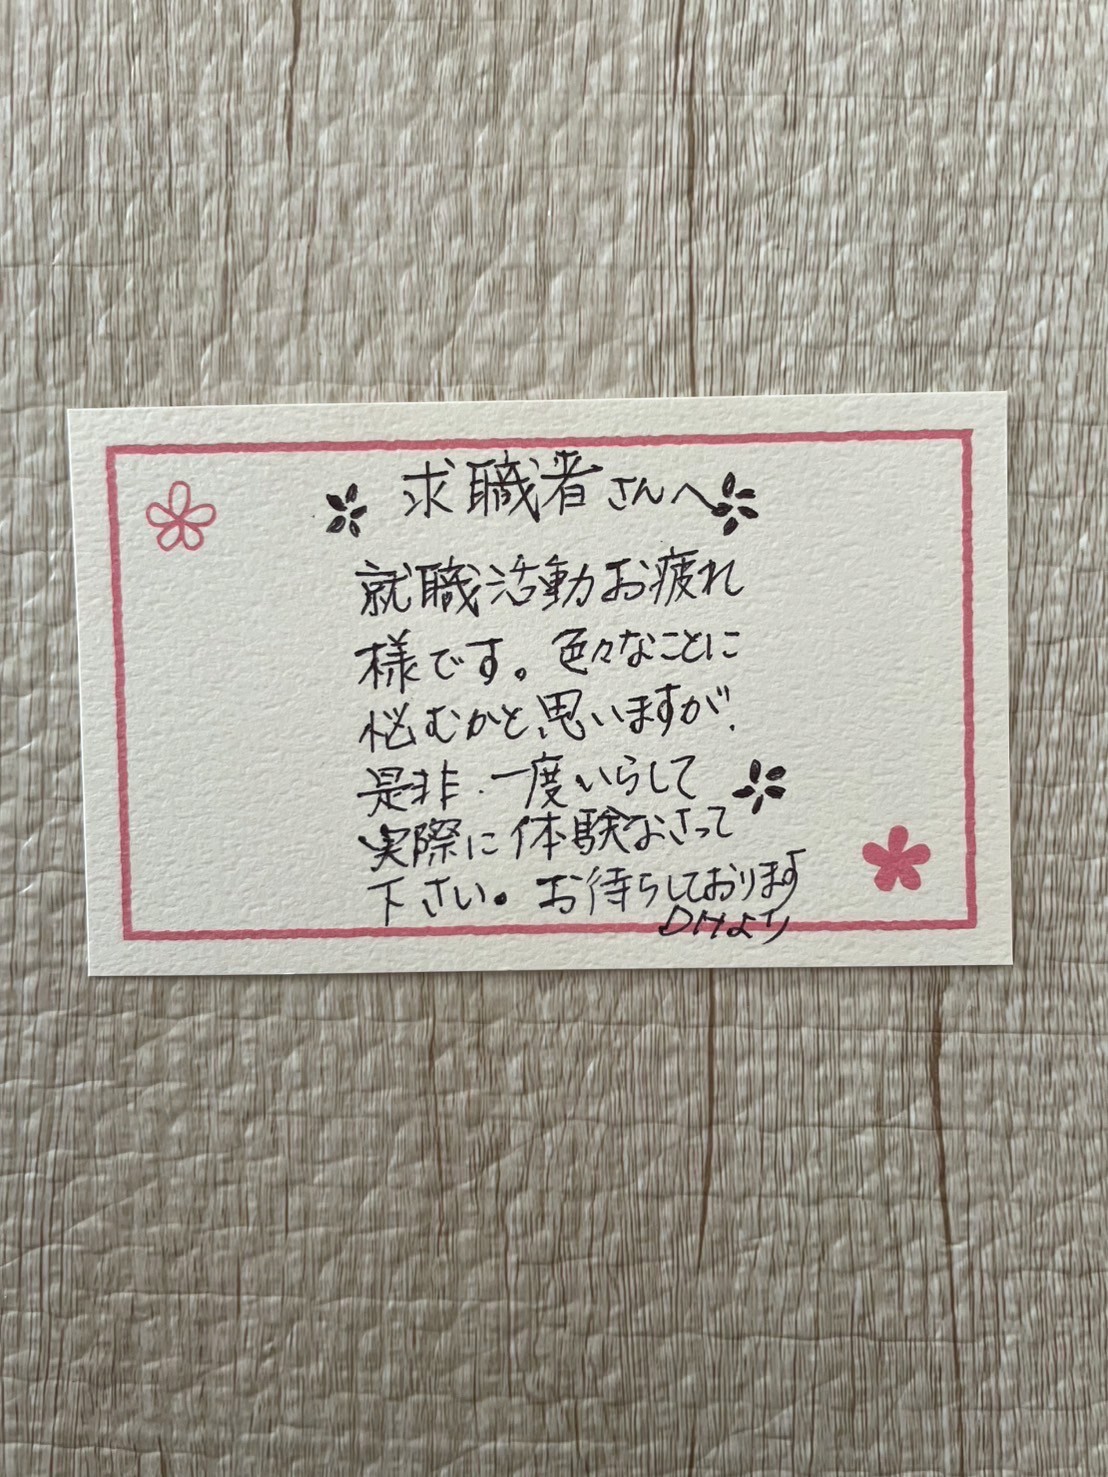 求職者さんへ
就職活動お疲れ
様です。色々なことに
悩むかと思いますが、
是非、一度いらして
実際に体験なさって
下さい。お待ちしております
DHより